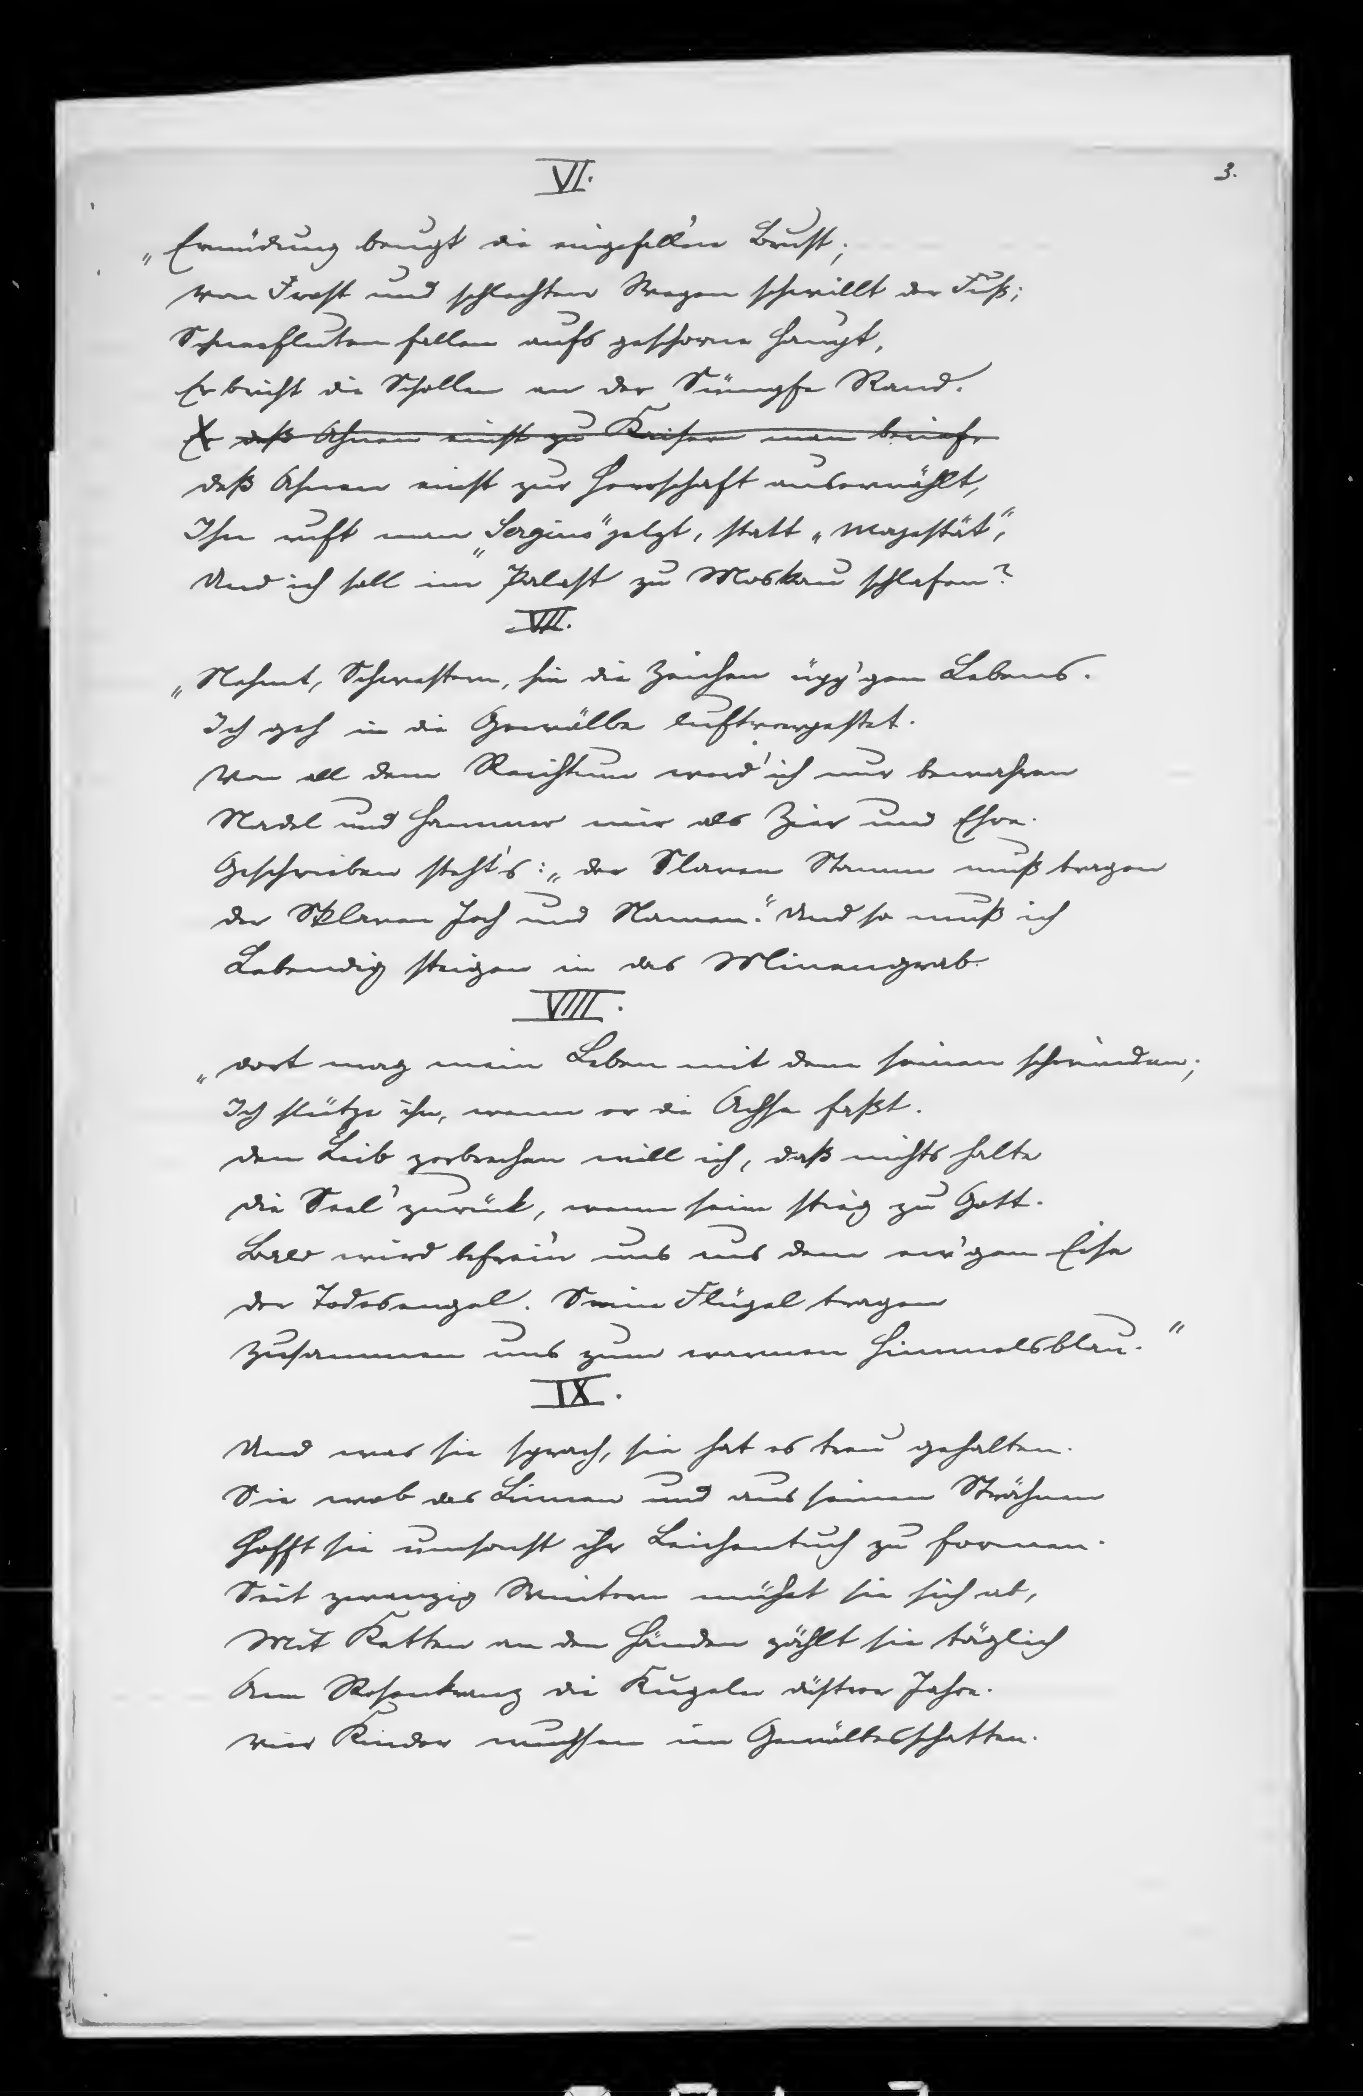 3.
VI.
„Ermüdung beugt die eingefall'ne Brust;
von Frost und schlechten Wegen schwillt der Fuß;
Schneefluten fallen aufs geschorne Haupt,
Er bricht die Schollen an der Sümpfe Rand.
X daß Ahnen einst zu Kaisern man berief,
deß Ahnen einst zur Herrschaft auserwählt,
Ihn ruft man „Sergius" jetzt, statt „Majestät",
Und ich soll im Palast zu Moskau schlafen?
VII.
„Nehmt, Schwestern, hin die Zeichen üpp'gen Lebens.
Ich geh in die Gewölbe luftverpestet.
Von all dem Reichtum werd' ich nur bewahren
Nadel und Hammer mir als Zier und Ehre.
Geschrieben steht's: „der Slaven Stamm muß tragen
der Sklaven Joch und Namen." Und so muß ich
Lebendig steigen in das Minengrab.
VIII.
„dort mag mein Leben mit dem seinen schwinden;
Ich stütze ihn, wenn er die Achse faßt.
den Leib zerbrechen will ich, daß nichts halte
die Seel' zurück, wenn seine stieg zu Gott.
Bald wird befrei'n uns aus dem ew'gen Eise
der Todesengel. Seine Flügel tragen
Zusammen uns zum warmen Himmelsblau."
IX.
Und was sie sprach, sie hat es treu gehalten.
Sie wob das Linnen und aus seinen Strähnen
Hofft sie umsonst ihr Leichentuch zu formen.
Seit zwanzig Wintern mühet sie sich ab,
Mit Ketten an den Händen zählt sie täglich
Am Rosenkranz die Kugeln düstrer Jahre.
vier Kinder wuchsen im Gewölbesschatten.